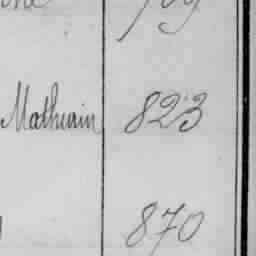 Mathurin 823
870